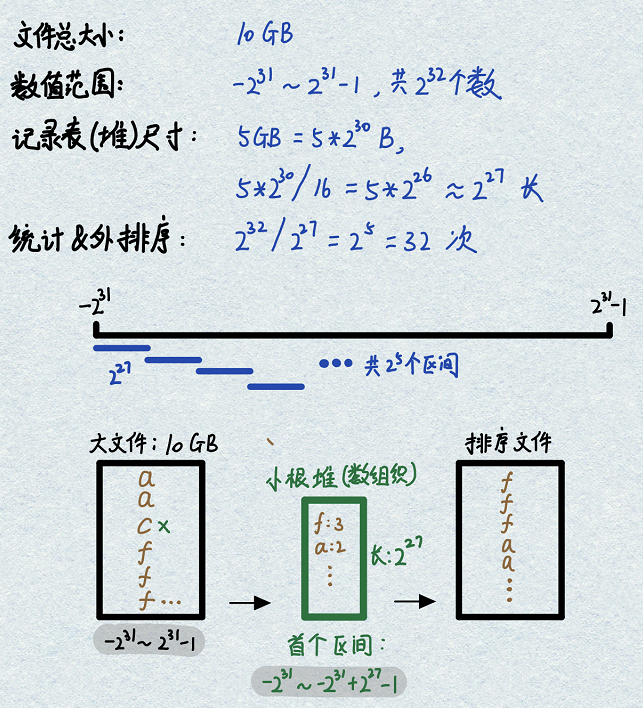 文件总大小： 10 GB
数值范围： -2³¹ ~ 2³¹-1 ，共 2³² 个数
记录表(堆)尺寸： 5GB = 5*2³⁰ B，
5*2³⁰/16 = 5*2²⁶ ≈ 2²⁷ 长
统计&外排序： 2³²/2²⁷ = 2⁵ = 32 次
-2³¹ 2³¹-1
2²⁷ ••• 共 2⁵个区间
大文件：10 GB
a
a
c ×
f
f
f ...
-2³¹ ~ 2³¹-1
小根堆(数组织)
f:3
a:2
⋮
长:2²⁷
首个区间：
-2³¹ ~ -2³¹+2²⁷-1
排序文件
f
f
f
a
a
⋮